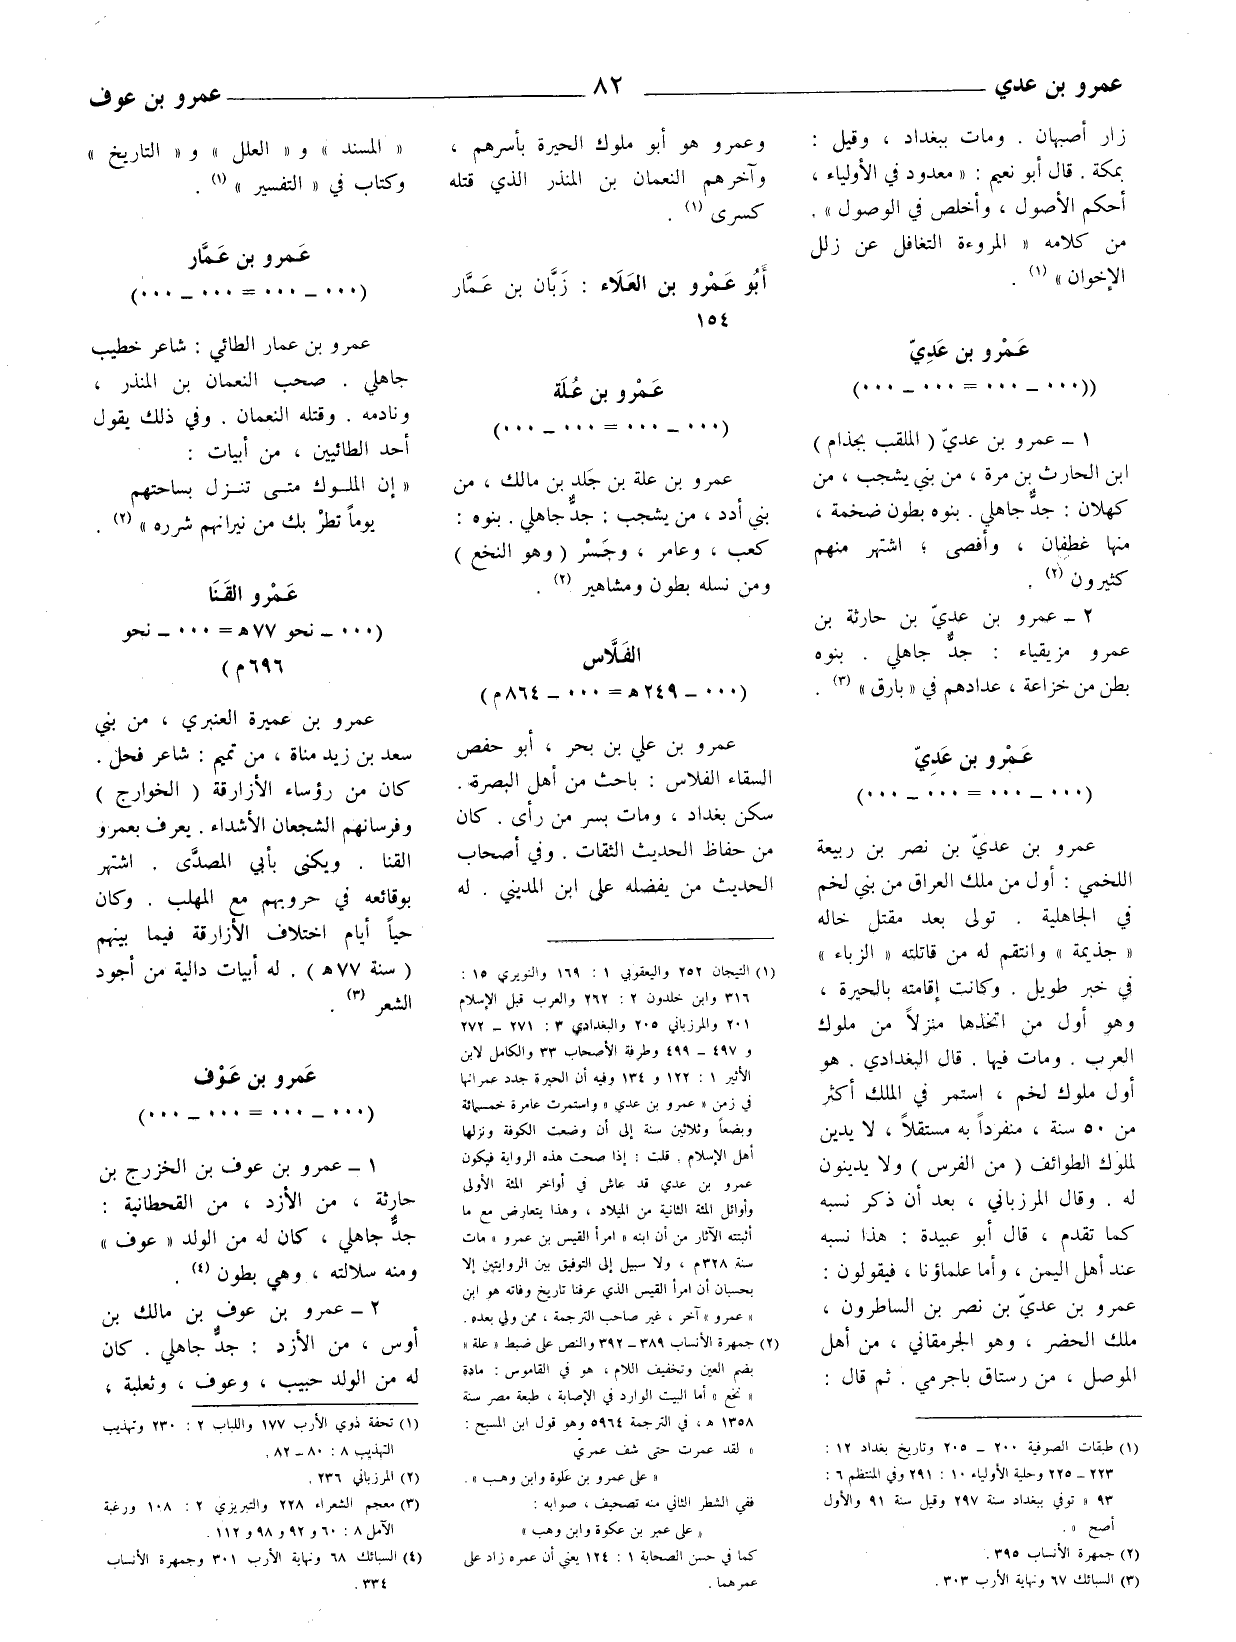 عمرو بن عدي
٨٢
عمرو بن عوف
زار أصبهان . ومات ببغداد ، وقيل :
بمكة . قال أبو نعيم : « معدود في الأولياء ،
أحكم الأصول ، وأخلص في الوصول » .
من كلامه « المروءة التغافل عن زلل
الإخوان » (١) .
عَمْرو بن عَدِيّ
((٠٠٠ ــ ٠٠٠ = ٠٠٠ ــ ٠٠٠)
١ ــ عمرو بن عديّ ( الملقب بجذام )
ابن الحارث بن مرة ، من بني يشجب ، من
كهلان : جدٌّ جاهلي . بنوه بطون ضخمة ،
منها غطفان ، وأفصى ؛ اشتهر منهم
كثيرون (٢) .
٢ ــ عمرو بن عديّ بن حارثة بن
عمرو مزيقياء : جدٌّ جاهلي . بنوه
بطن من خزاعة ، عدادهم في « بارق » (٣) .
عَمْرو بن عَدِيّ
(٠٠٠ ــ ٠٠٠ = ٠٠٠ ــ ٠٠٠)
عمرو بن عديّ بن نصر بن ربيعة
اللخمي : أول من ملك العراق من بني لخم
في الجاهلية . تولى بعد مقتل خاله
« جذيمة » وانتقم له من قاتلته « الزباء »
في خبر طويل . وكانت إقامته بالحيرة ،
وهو أول من اتخذها منزلاً من ملوك
العرب . ومات فيها . قال البغدادي . هو
أول ملوك لخم ، استمر في الملك أكثر
من ٥٠ سنة ، منفرداً به مستقلاً ، لا يدين
لملوك الطوائف ( من الفرس ) ولا يدينون
له . وقال المرزباني ، بعد أن ذكر نسبه
كما تقدم ، قال أبو عبيدة : هذا نسبه
عند أهل اليمن ، وأما علماؤنا ، فيقولون :
عمرو بن عديّ بن نصر بن الساطرون ،
ملك الحضر ، وهو الجرمقاني ، من أهل
الموصل ، من رستاق باجرمي . ثم قال :
(١) طبقات الصوفية ٢٠٠ ــ ٢٠٥ وتاريخ بغداد ١٢ :
٢٢٣ ــ ٢٢٥ وحلية الأولياء ١٠ : ٢٩١ وفي المنتظم ٦ :
٩٣ « توفي ببغداد سنة ٢٩٧ وقيل سنة ٩١ والأول
أصح » .
(٢) جمهرة الأنساب ٣٩٥ .
(٣) السبائك ٦٧ ونهاية الأرب ٣٠٣ .
وعمرو هو أبو ملوك الحيرة بأسرهم ،
وآخرهم النعمان بن المنذر الذي قتله
كسرى (١) .
أَبُو عَمْرو بن العَلَاء : زَبَّان بن عَمَّار
١٥٤
عَمْرو بن عُلَة
(٠٠٠ ــ ٠٠٠ = ٠٠٠ ــ ٠٠٠)
عمرو بن علة بن جَلد بن مالك ، من
بني أدد ، من يشجب : جدٌّ جاهلي . بنوه :
كعب ، وعامر ، وجَسْر ( وهو النخع )
ومن نسله بطون ومشاهير (٢) .
الفَلَّاس
(٠٠٠ ــ ٢٤٩ هـ = ٠٠٠ ــ ٨٦٤ م)
عمرو بن علي بن بحر ، أبو حفص
السقاء الفلاس : باحث من أهل البصرة .
سكن بغداد ، ومات بسر من رأى . كان
من حفاظ الحديث الثقات . وفي أصحاب
الحديث من يفضله على ابن المديني . له
(١) التيجان ٢٥٢ واليعقوبي ١ : ١٦٩ والنويري ١٥ :
٣١٦ وابن خلدون ٢ : ٢٦٢ والعرب قبل الإسلام
٢٠١ والمرزباني ٢٠٥ والبغدادي ٣ : ٢٧١ ــ ٢٧٢
و ٤٩٧ ــ ٤٩٩ وطرفة الأصحاب ٣٣ والكامل لابن
الأثير ١ : ١٢٢ و ١٣٤ وفيه أن الحيرة جدد عمرانها
في زمن « عمرو بن عدي » واستمرت عامرة خمسمائة
وبضعاً وثلاثين سنة إلى أن وضعت الكوفة ونزلها
أهل الإسلام . قلت : إذا صحت هذه الرواية فيكون
عمرو بن عدي قد عاش في أواخر المئة الأولى
وأوائل المئة الثانية من الميلاد ، وهذا يتعارض مع ما
أثبتته الآثار من أن ابنه « امرأ القيس بن عمرو » مات
سنة ٣٢٨ م ، ولا سبيل إلى التوفيق بين الروايتين إلا
بحسبان أن امرأ القيس الذي عرفنا تاريخ وفاته هو ابن
« عمرو » آخر ، غير صاحب الترجمة ، ممن ولي بعده .
(٢) جمهرة الأنساب ٣٨٩ ــ ٣٩٢ والنص على ضبط « علة »
بضم العين وتخفيف اللام ، هو في القاموس : مادة
« نخع » أما البيت الوارد في الإصابة ، طبعة مصر سنة
١٣٥٨ هـ ، في الترجمة ٥٩٦٤ وهو قول ابن المسبح :
« لقد عمرت حتى شف عمريّ
« على عمرو بن علوة وابن وهب » .
ففي الشطر الثاني منه تصحيف ، صوابه :
« على عمر بن عكوة وابن وهب »
كما في حسن الصحابة ١ : ١٢٤ يعني أن عمره زاد على
عمرهما .
« المسند » و « العلل » و « التاريخ »
وكتاب في « التفسير » (١) .
عَمرو بن عَمَّار
(٠٠٠ ــ ٠٠٠ = ٠٠٠ ــ ٠٠٠)
عمرو بن عمار الطائي : شاعر خطيب
جاهلي . صحب النعمان بن المنذر ،
ونادمه . وقتله النعمان . وفي ذلك يقول
أحد الطائيين ، من أبيات :
« إن الملوك متى تنزل بساحتهم
يوماً تطرْ بك من نيرانهم شرره » (٢) .
عَمْرو القَنَا
(٠٠٠ ــ نحو ٧٧ هـ = ٠٠٠ ــ نحو
٦٩٦ م )
عمرو بن عميرة العنبري ، من بني
سعد بن زيد مناة ، من تميم : شاعر فحل .
كان من رؤساء الأزارقة ( الخوارج )
وفرسانهم الشجعان الأشداء . يعرف بعمرو
القنا . ويكنى بأبي المصدَّى . اشتهر
بوقائعه في حروبهم مع المهلب . وكان
حياً أيام اختلاف الأزارقة فيما بينهم
( سنة ٧٧ هـ ) . له أبيات دالية من أجود
الشعر (٣) .
عَمرو بن عَوْف
(٠٠٠ ــ ٠٠٠ = ٠٠٠ ــ ٠٠٠)
١ ــ عمرو بن عوف بن الخزرج بن
حارثة ، من الأزد ، من القحطانية :
جدٌّ جاهلي ، كان له من الولد « عوف »
ومنه سلالته ، وهي بطون (٤) .
٢ ــ عمرو بن عوف بن مالك بن
أوس ، من الأزد : جدٌّ جاهلي . كان
له من الولد حبيب ، وعوف ، وثعلبة ،
(١) تحفة ذوي الأرب ١٧٧ واللباب ٢ : ٢٣٠ وتهذيب
التهذيب ٨ : ٨٠ ــ ٨٢ .
(٢) المرزباني ٢٣٦ .
(٣) معجم الشعراء ٢٢٨ والتبريزي ٢ : ١٠٨ ورغبة
الآمل ٨ : ٦٠ و ٩٢ و ٩٨ و ١١٢ .
(٤) السبائك ٦٨ ونهاية الأرب ٣٠١ وجمهرة الأنساب
٣٣٤ .